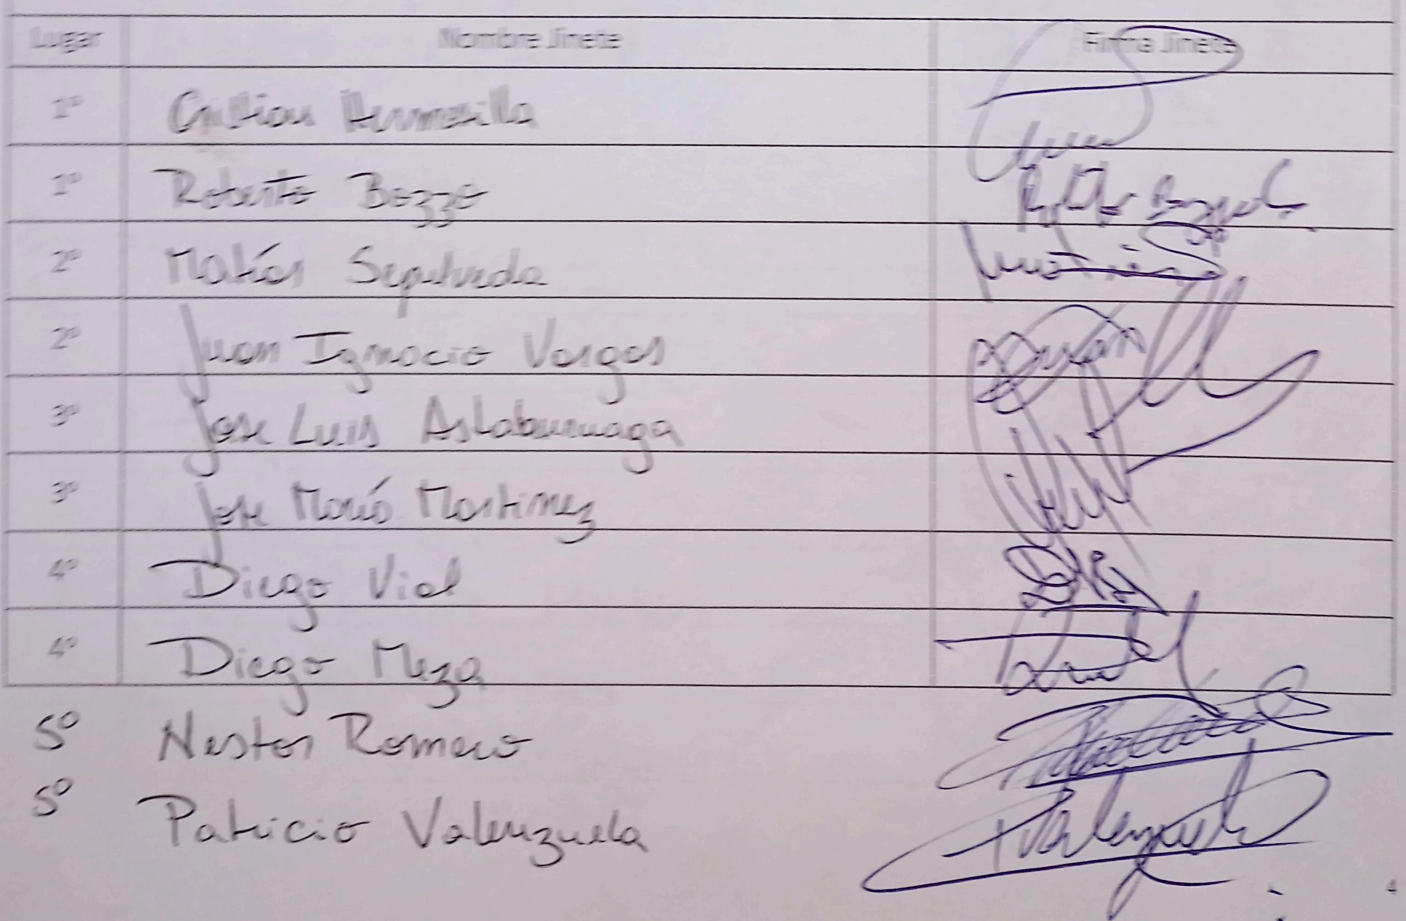 Lugar Nombre Jinete Firma Jinete
1º Cristian Hermosilla
1º Roberto Bozzo
2º Matías Sepulveda
2º Juan Ignacio Vargas
3º Jose Luis Astaburuaga
3º Jose María Martinez
4º Diego Vial
4º Diego Meza
5º Nestor Romero
5º Patricio Valenzuela
4